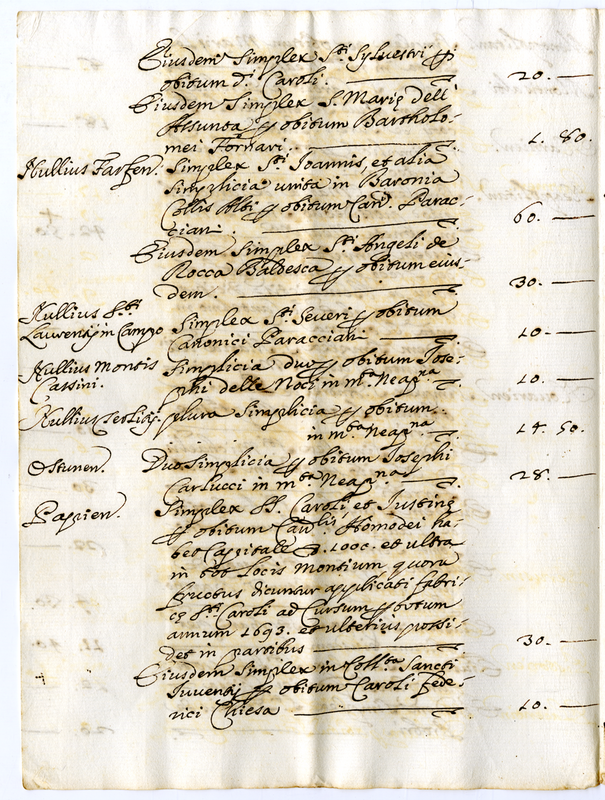 Eiusdem Simplex Sti Sylvestri p
obitum di Caroli. 20. —
Eiusdem Simplex S. Mariȩ dell'
Assunta p obitum Bartholo-
mei Fornari. 1. 80.
Nullius Farfen. Simplex Sti Ioannis, et alia
Simplicia unita in Baronia
Collis Alti p obitum Can. Parac-
ciani. 60. —
Eiusdem Simplex Sti Angeli de
Rocca Baldesca p obitum eius-
dem. 30. —
Nullius Sti
Laurentij in Campo Simplex Sti Severi p obitum
Canonici Paracciani 10. —
Nullius Montis
Cassini. Simplicia duo p obitum Iose-
phi delle Noci in mta Neapna 10. —
Nullius plura Simplicia p obitum
in mta Neapna 14. 50.
Ostunen. Duo Simplicia p obitum Iosephi
Carlucci in mta Neapna 28. —
Papien. Simplex SS. Caroli et Iustinȩ
p obitum Homodei ha-
bet Capitale 1000. et ultra
in Locis Montium quorū
fructus dicuntur applicati fabri-
cȩ Sti Caroli ad Cursum p totum
annum 1693. et ulterius possi-
det in partibus 30. —
Eiusdem Simplex in Collta Sancti
Iuventij p obitum Caroli Fede-
rici Chiesa 10. —